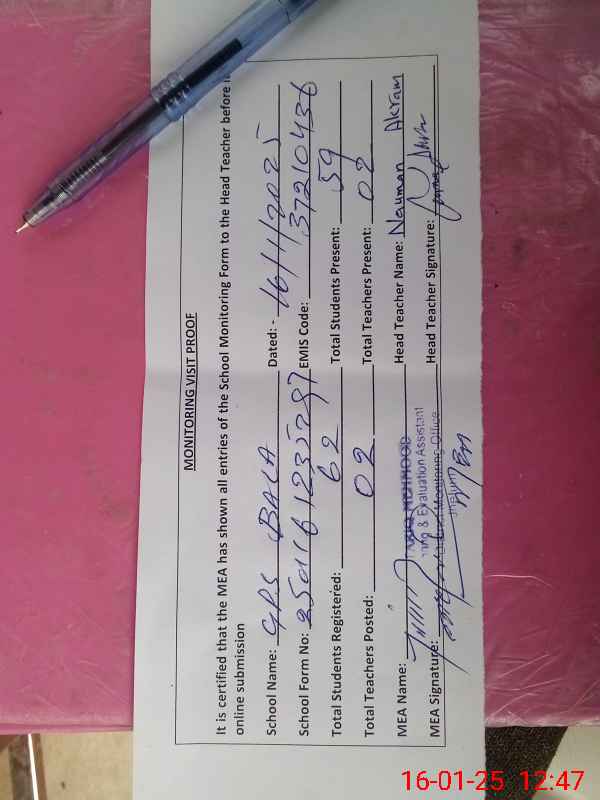 MONITORING VISIT PROOF
It is certified that the MEA has shown all entries of the School Monitoring Form to the Head Teacher before
online submission
School Name: GPS BALA Dated: - 16/1/2025
School Form No: EMIS Code: 37210436
Total Students Registered: 62 Total Students Present: 59
Total Teachers Posted: 02 Total Teachers Present: 02
MEA Name: Head Teacher Name: Nauman Akram
MEA Signature: Head Teacher Signature:
& Evaluation Assistant
Monitoring Office
Jhelum
16-01-25 12:47